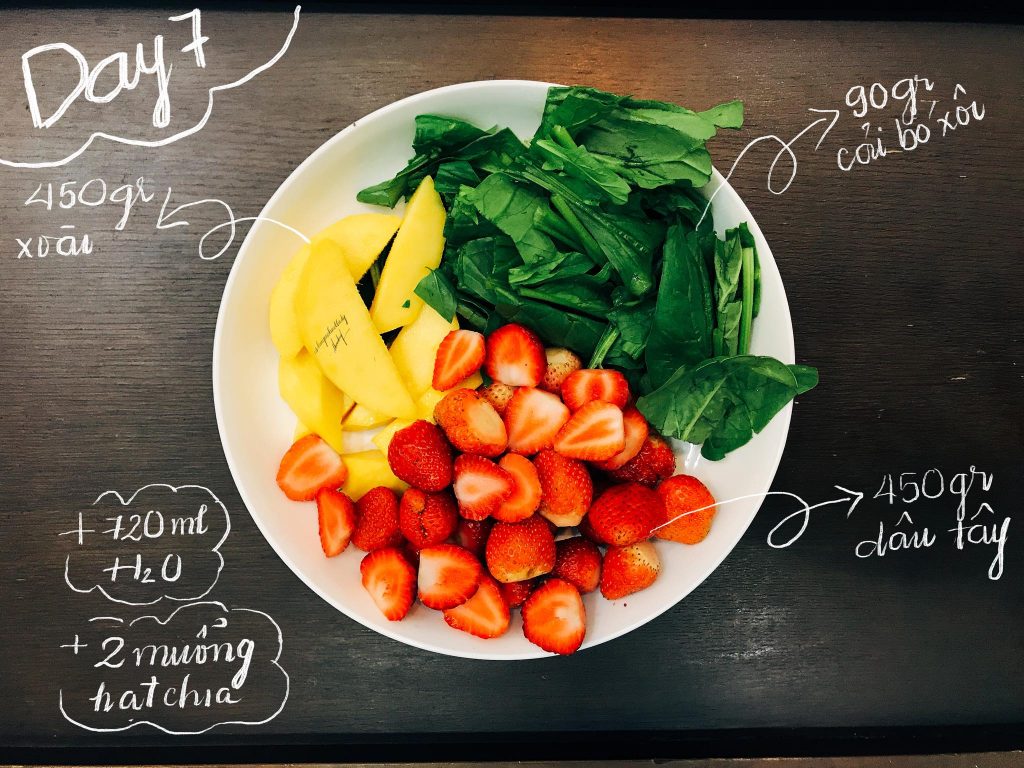 Day 7
90gr
cải bó xôi
450gr
xoài
450gr
dâu tây
+ 720ml
H₂O
+ 2 muỗng
hạt chia